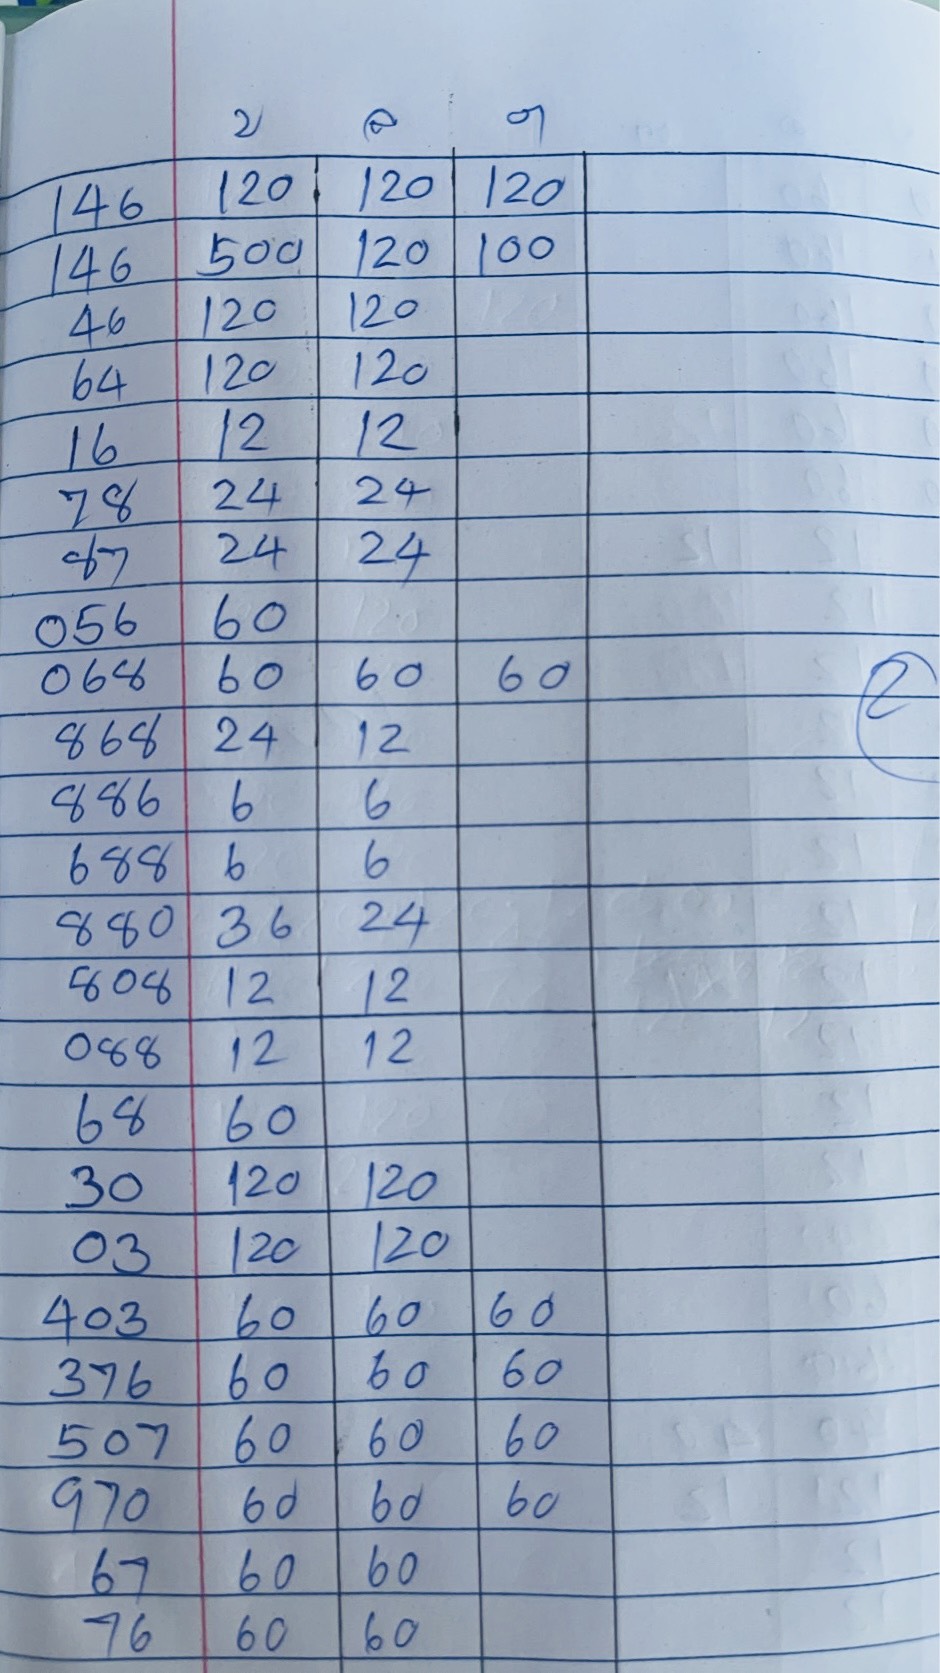 บ ล ต
146 120 120 120
146 500 120 100
46 120 120
64 120 120
16 12 12
78 24 24
87 24 24
056 60
068 60 60 60
2
868 24 12
886 6 6
688 6 6
880 36 24
808 12 12
088 12 12
68 60
30 120 120
03 120 120
403 60 60 60
376 60 60 60
507 60 60 60
970 60 60 60
67 60 60
76 60 60